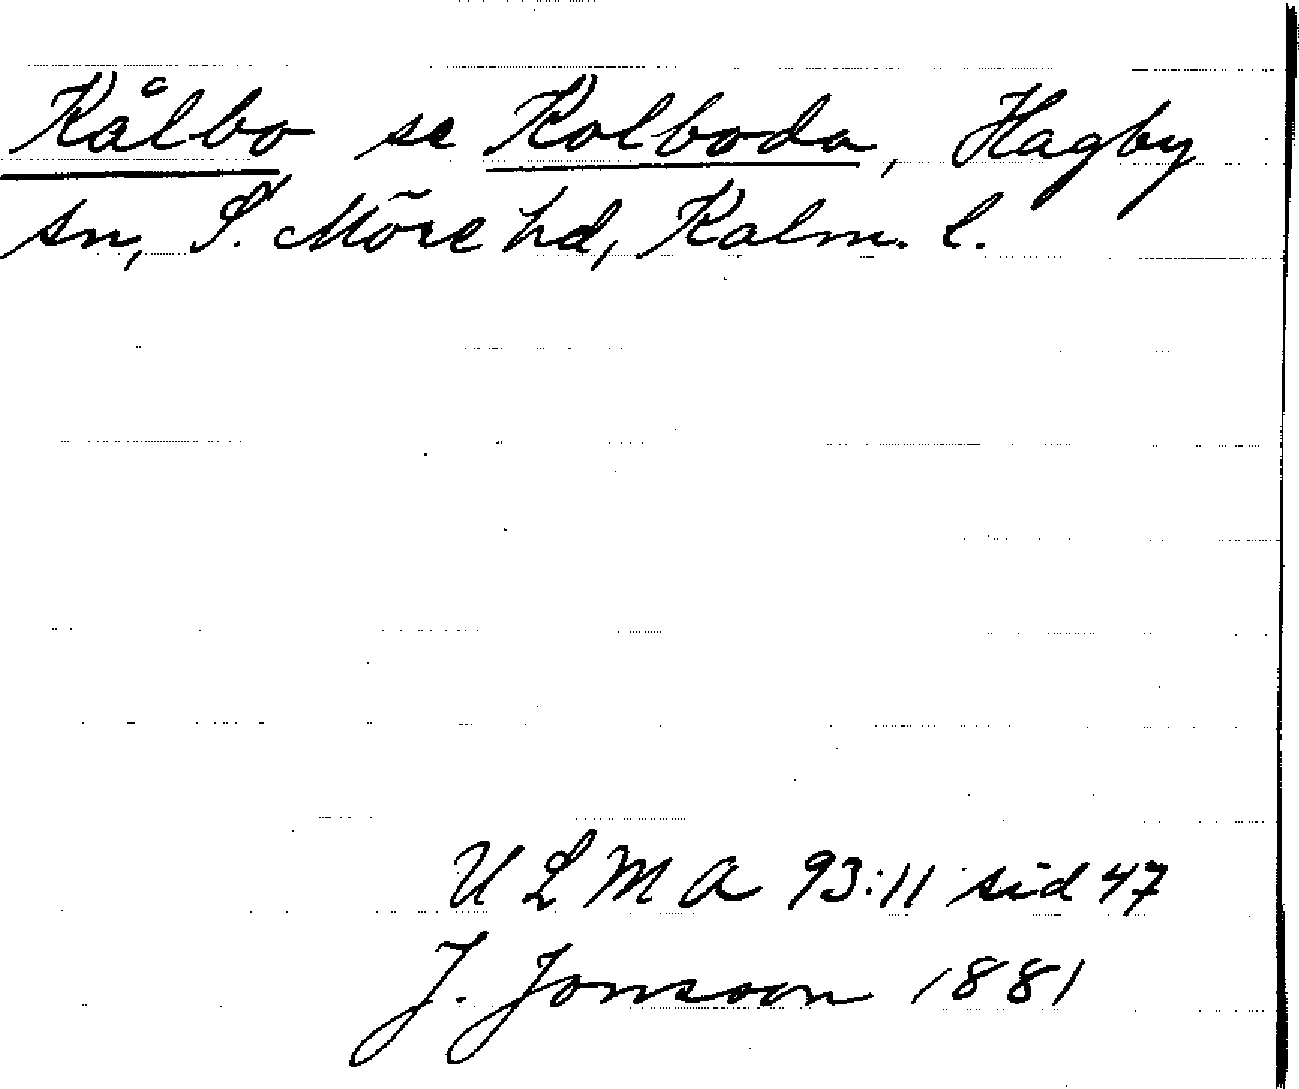 Kålbo se Kolboda, Hagby
sn, S. Möre hd, Kalm. l.
ULMA 93:11 sid 47
J. Jonsson 1881